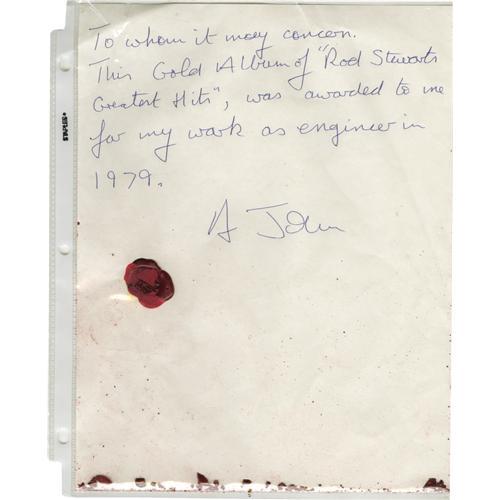 To whom it may concern.
This Gold Album of "Rod Stewarts
Greatest Hits", was awarded to me
for my work as engineer in
1979.
A John
STAPLES